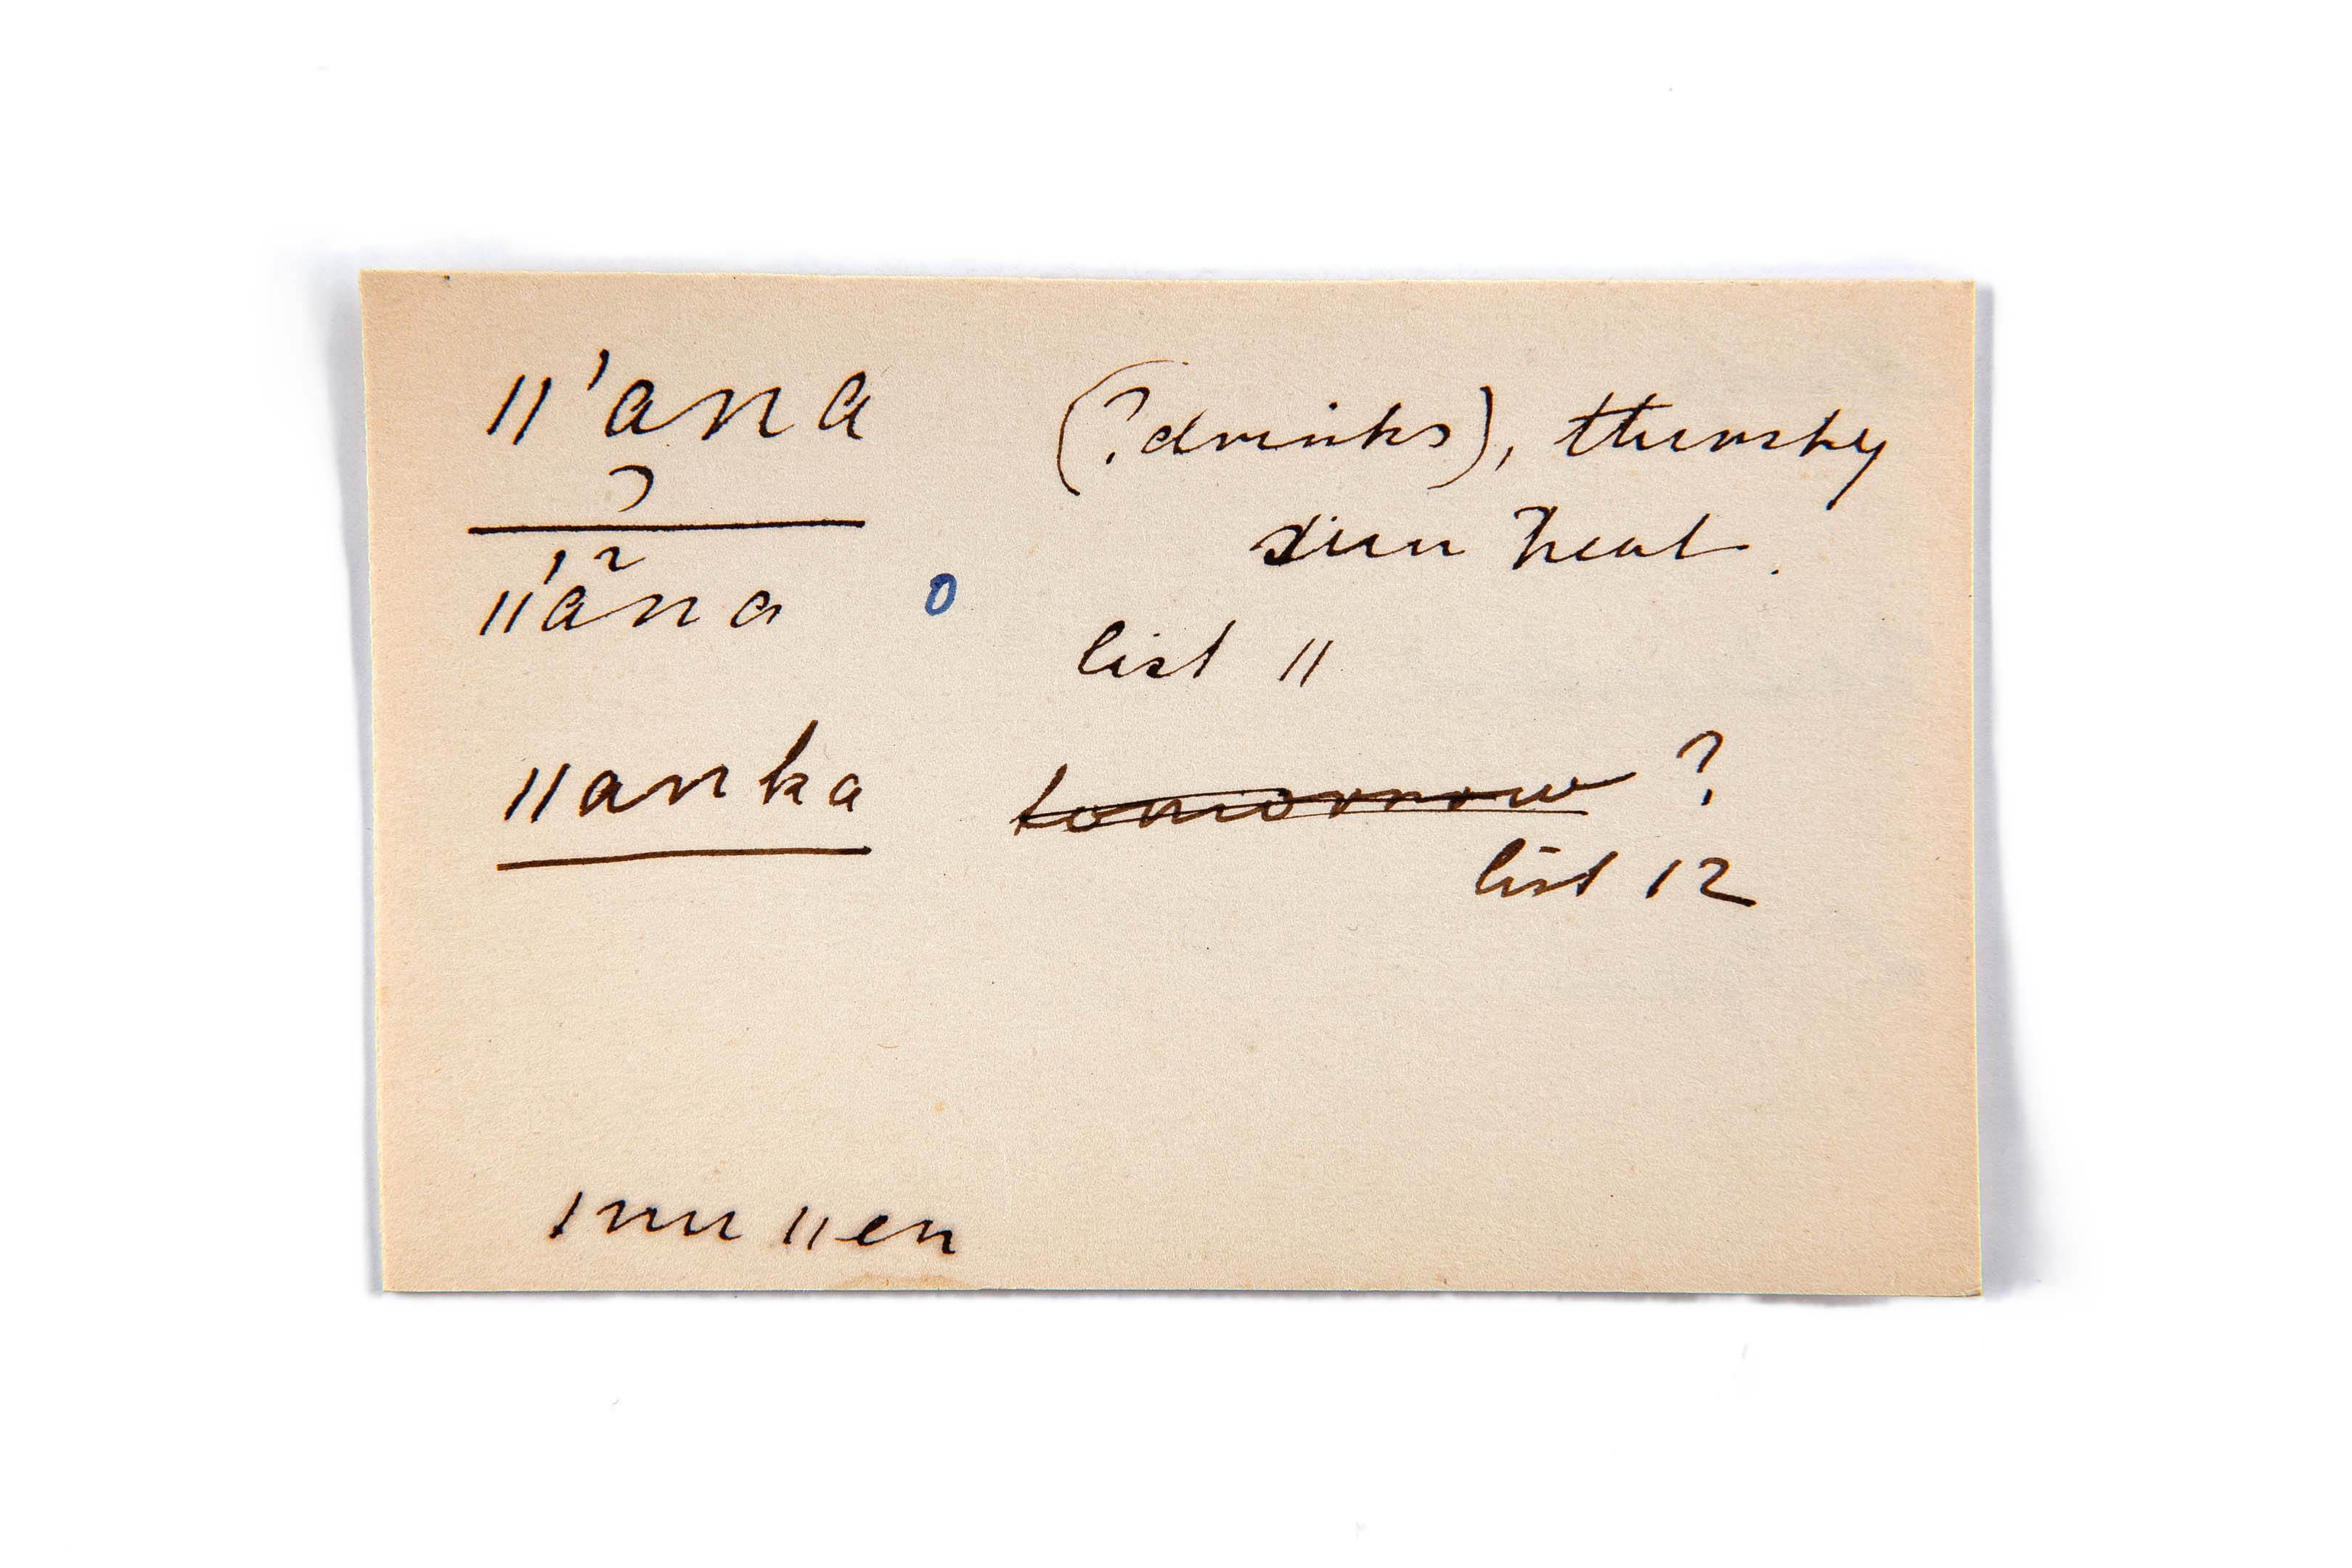 ǁ'ana (?drinks), thirsty
ɔ
ǁ'ãna o sun heat.
list 11
ǁanka tomorrow ?
list 12
ǀnu ǁen